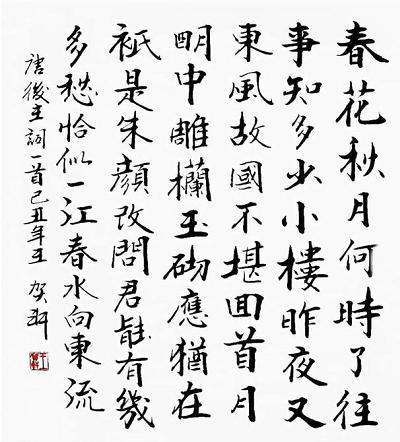 春花秋月何時了往
事知多少小樓昨夜又
東風故國不堪回首月
明中雕欄玉砌應猶在
衹是朱顏改問君能有幾
多愁恰似一江春水向東流
唐後主詞一首己丑年王贺